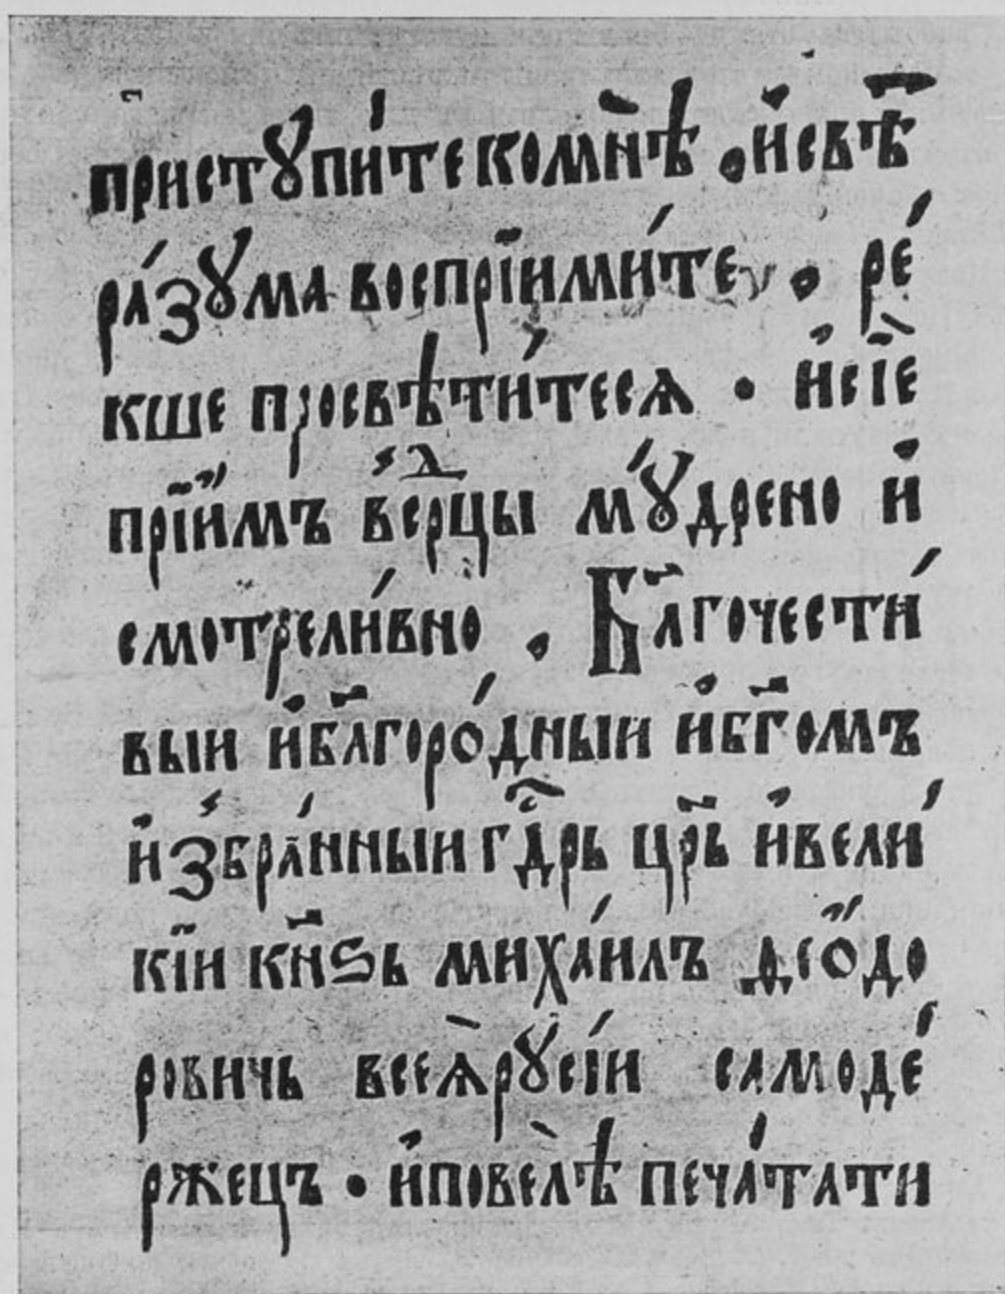 пристꙋпи́те комнѣ̀ . и҆свѣ́т
ра́зꙋма воспрїими́те , ре́
кше просвѣти́теся • и҆сїѐ
прїи́мъ в̾се́рдⷣцы мꙋ́дрено и҆
смотрели́вно , Бл҃гочести́
выи и҆бл҃горо́дныи и҆бг҃омъ
и҆збра́нныи гд҃рь цр҃ь и҆вели́
кїи кн҃ѕь михаилъ ѳео́до
ровичь всеѧ̀ рꙋсі́и самоде́
ржецъ • и҆повелѣ̀ печа́тати